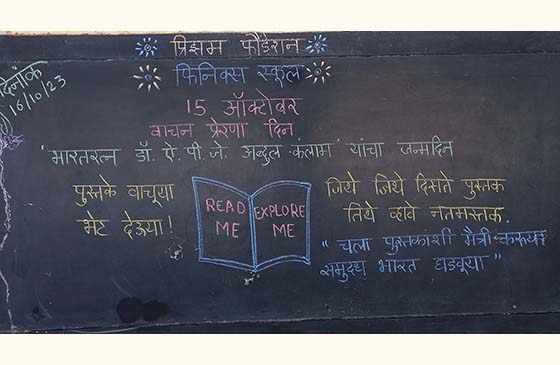 दिनांक
16/10/23
प्रिझम फौंडेशन
फिनिक्स स्कूल
15 ऑक्टोबर
वाचन प्रेरणा दिन
'भारतरत्न डॉ. ऐ. पी. जे. अब्दुल कलाम' यांचा जन्मदिन
पुस्तके वाचूया
भेट देऊया!
READ
ME
EXPLORE
ME
जिथे जिथे दिसते पुस्तक
तिथे व्हावे नतमस्तक.
"चला पुस्तकांशी मैत्री करूया
समृद्ध भारत घडवूया"